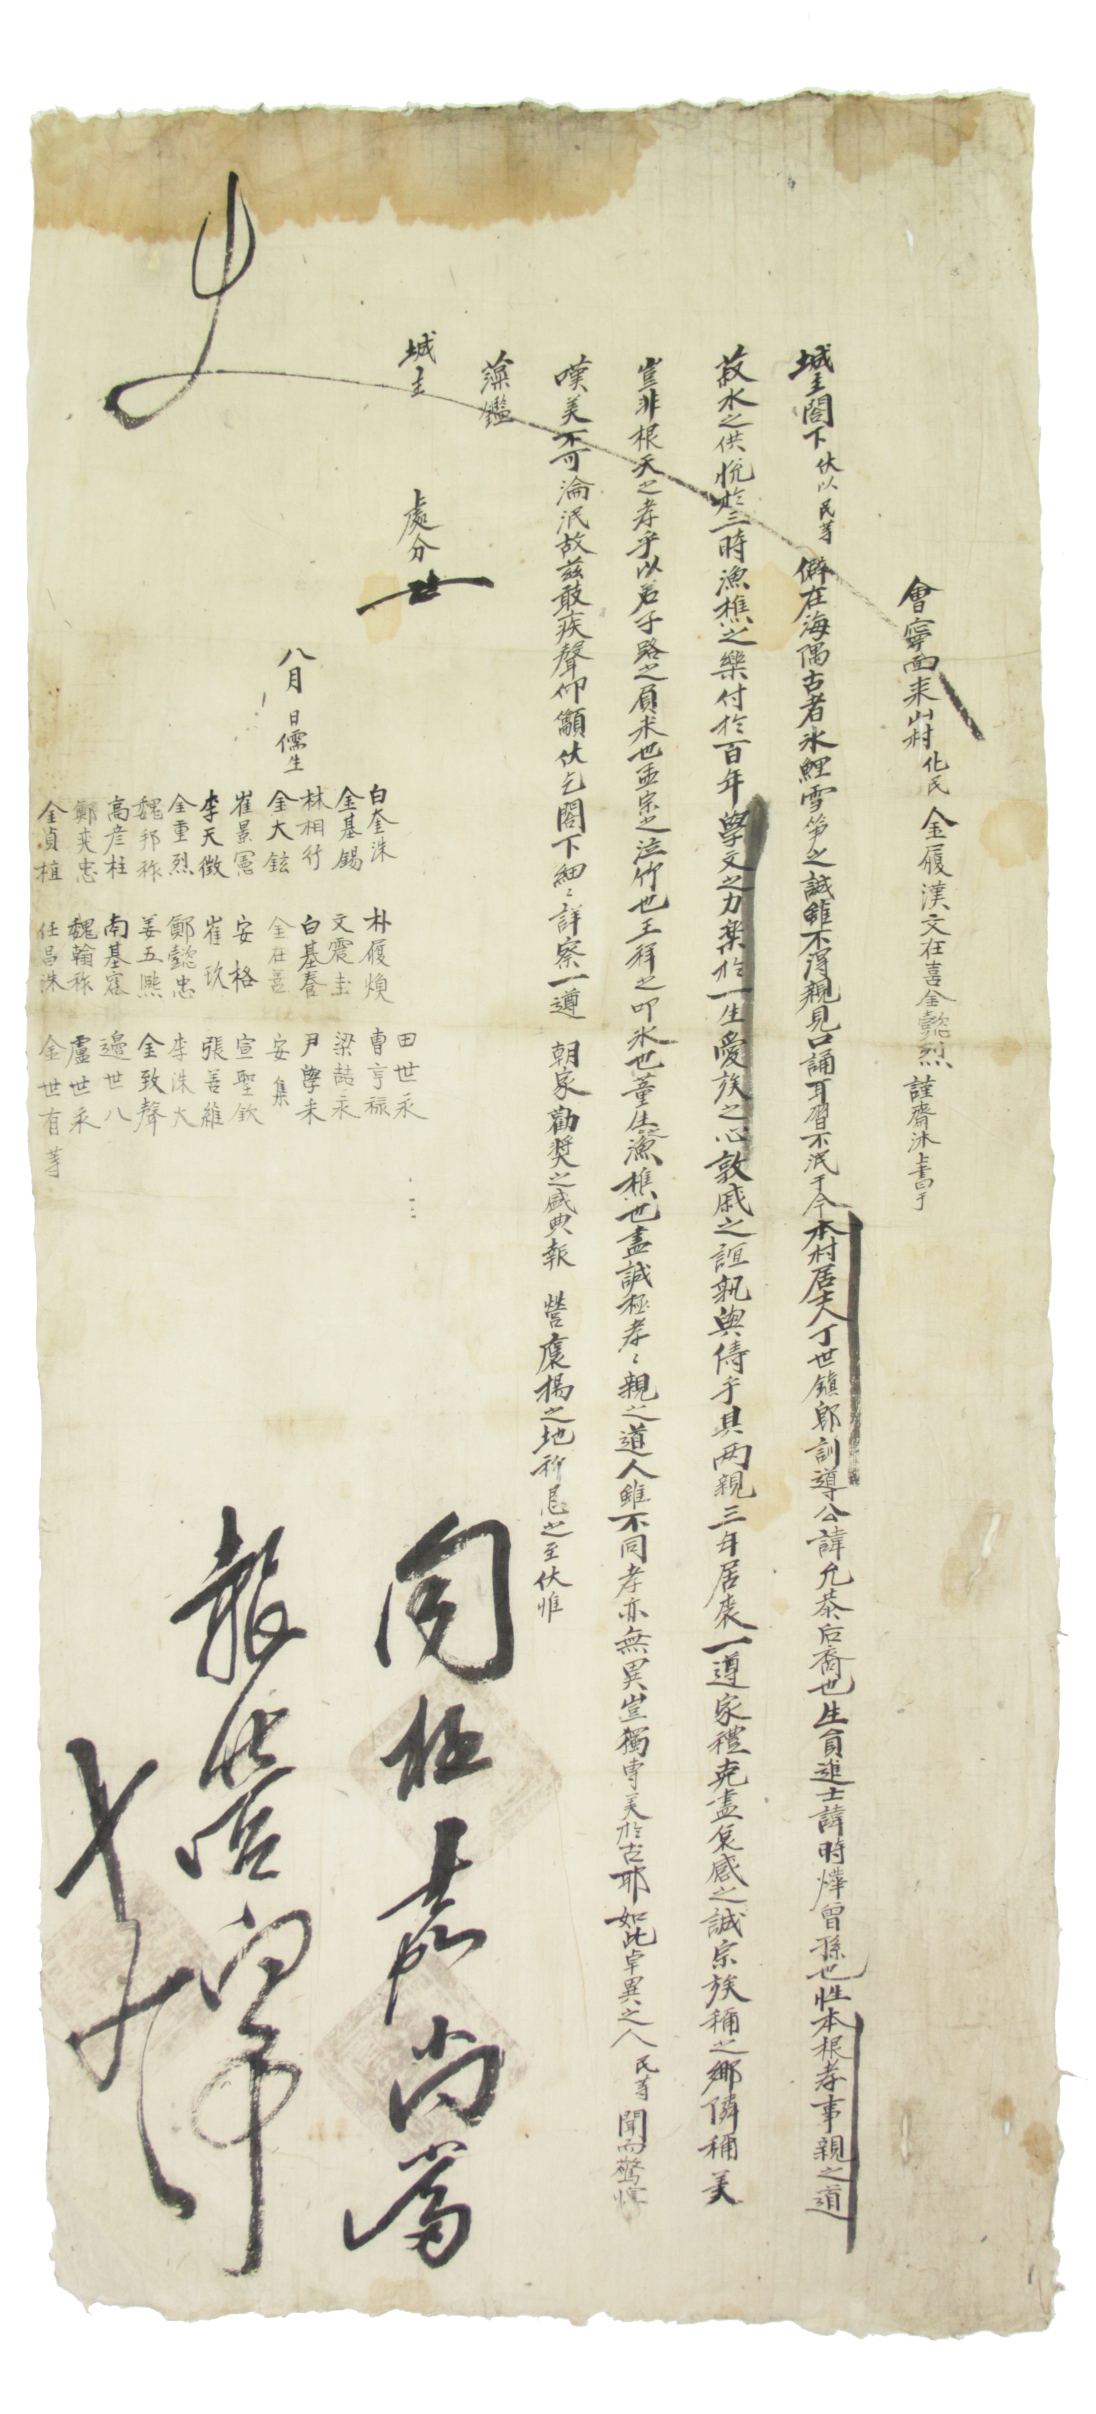 會寧面来山村 化民 金履漢文在喜金懿烈 謹齋沐上書于
城主閤下 伏以民等 僻在海隅古者氷鯉雪笋之誠雖不得親見口誦耳習不泯于今本村居士人丁世鎭卽訓導公諱允恭后裔也生員進士諱時燁曾孫也性本根孝事親之道
菽水之供悅於三時漁樵之樂付於百年學文之力樂於一生愛族之心敦戚之誼孰與儔乎具两親三年居喪一遵家禮克盡哀慼之誠宗族稱之鄕隣稱美
豈非根天之孝乎以若子路之負米也孟宗之泣竹也王祥之叩氷也董生漁樵也盡誠極孝〻親之道人雖不同孝亦無異豈獨專美於古耶如此卓異之人 民等 聞而驚
嘆美不可淪泯故玆敢疾聲仰籲伏乞閤下細〻詳察一遵 朝家勸奬之盛典報 營褒揚之地祈恳之至伏惟
藻鑑
城主 處分
八月 日儒生
田世永
白奎洙 朴履煥 曺亨祿
金基錫 文震圭 梁喆永
林相行 白基春 尹學耒
金大鉉 金在善 安集
崔景憲 安格 宣聖欽
李天徵 崔玖 張善維
金重烈 鄭懿忠 李洙大
魏邦祚 姜五熙 金致聲
高彦柱 南基容 邊世八
鄭奕忠 魏翰祚 盧世永
金貞植 任昌洙 金世有等
聞極嘉尚當
報營向事